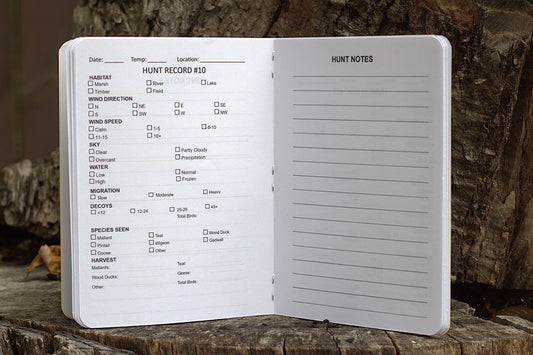 Date: _____ Temp: _____ Location: __________
HUNT RECORD #10
HABITAT
Marsh River Lake
Timber Field
WIND DIRECTION
N NE E SE
S SW W NW
WIND SPEED
Calm 1-5 6-10
11-15 16+
SKY
Clear Partly Cloudy
Overcast Precipitation
WATER
Low Normal
High Frozen
MIGRATION
Slow Moderate Heavy
DECOYS
<12 12-24 25-29 49+
Total Birds:
SPECIES SEEN
Mallard Teal Wood Duck
Pintail Wigeon Gadwall
Goose Other
HARVEST
Mallards: Teal:
Wood Ducks: Geese:
Other: Total Birds:
HUNT NOTES